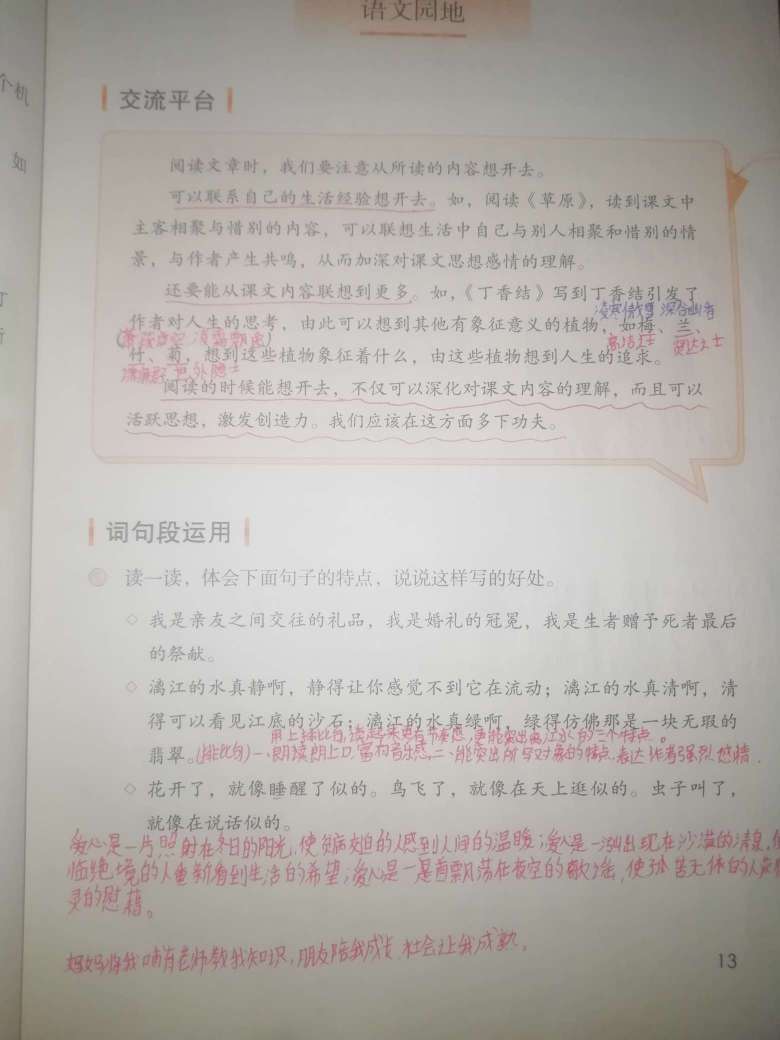 语文园地
个机
如
交流平台
阅读文章时，我们要注意从所读的内容想开去。
可以联系自己的生活经验想开去。如，阅读《草原》，读到课文中
主客相聚与惜别的内容，可以联想生活中自己与别人相聚和惜别的情
景，与作者产生共鸣，从而加深对课文思想感情的理解。
还要能从课文内容联想到更多。如，《丁香结》写到丁香结引发了
凌寒傲雪 深谷幽香
作者对人生的思考，由此可以想到其他有象征意义的植物，如梅、兰、
高洁志士 贤达之士
竹、菊，想到这些植物象征着什么，由这些植物想到人生的追求。
世外隐士
阅读的时候能想开去，不仅可以深化对课文内容的理解，而且可以
活跃思想，激发创造力。我们应该在这方面多下功夫。
词句段运用
读一读，体会下面句子的特点，说说这样写的好处。
◇ 我是亲友之间交往的礼品，我是婚礼的冠冕，我是生者赠予死者最后
的祭献。
◇ 漓江的水真静啊，静得让你感觉不到它在流动；漓江的水真清啊，清
得可以看见江底的沙石；漓江的水真绿啊，绿得仿佛那是一块无瑕的
用上排比句，读起来更有节奏感，更能突出漓江水的三个特点。
翡翠。(排比句)一、朗读朗上口，富有音乐感，二、能突出所写对象的特点，表达作者强烈感情.
◇ 花开了，就像睡醒了似的。鸟飞了，就像在天上逛似的。虫子叫了，
就像在说话似的。
爱心是一片照射在冬日的阳光，使贫病交迫的人感到人间的温暖；爱心是一泓出现在沙漠的清泉，使
临绝境的人重新看到生活的希望；爱心是一首飘荡在夜空的歌谣，使孤苦无依的人获得
灵的慰藉。
妈妈将我哺育，老师教我知识，朋友陪我成长，社会让我成熟。
13